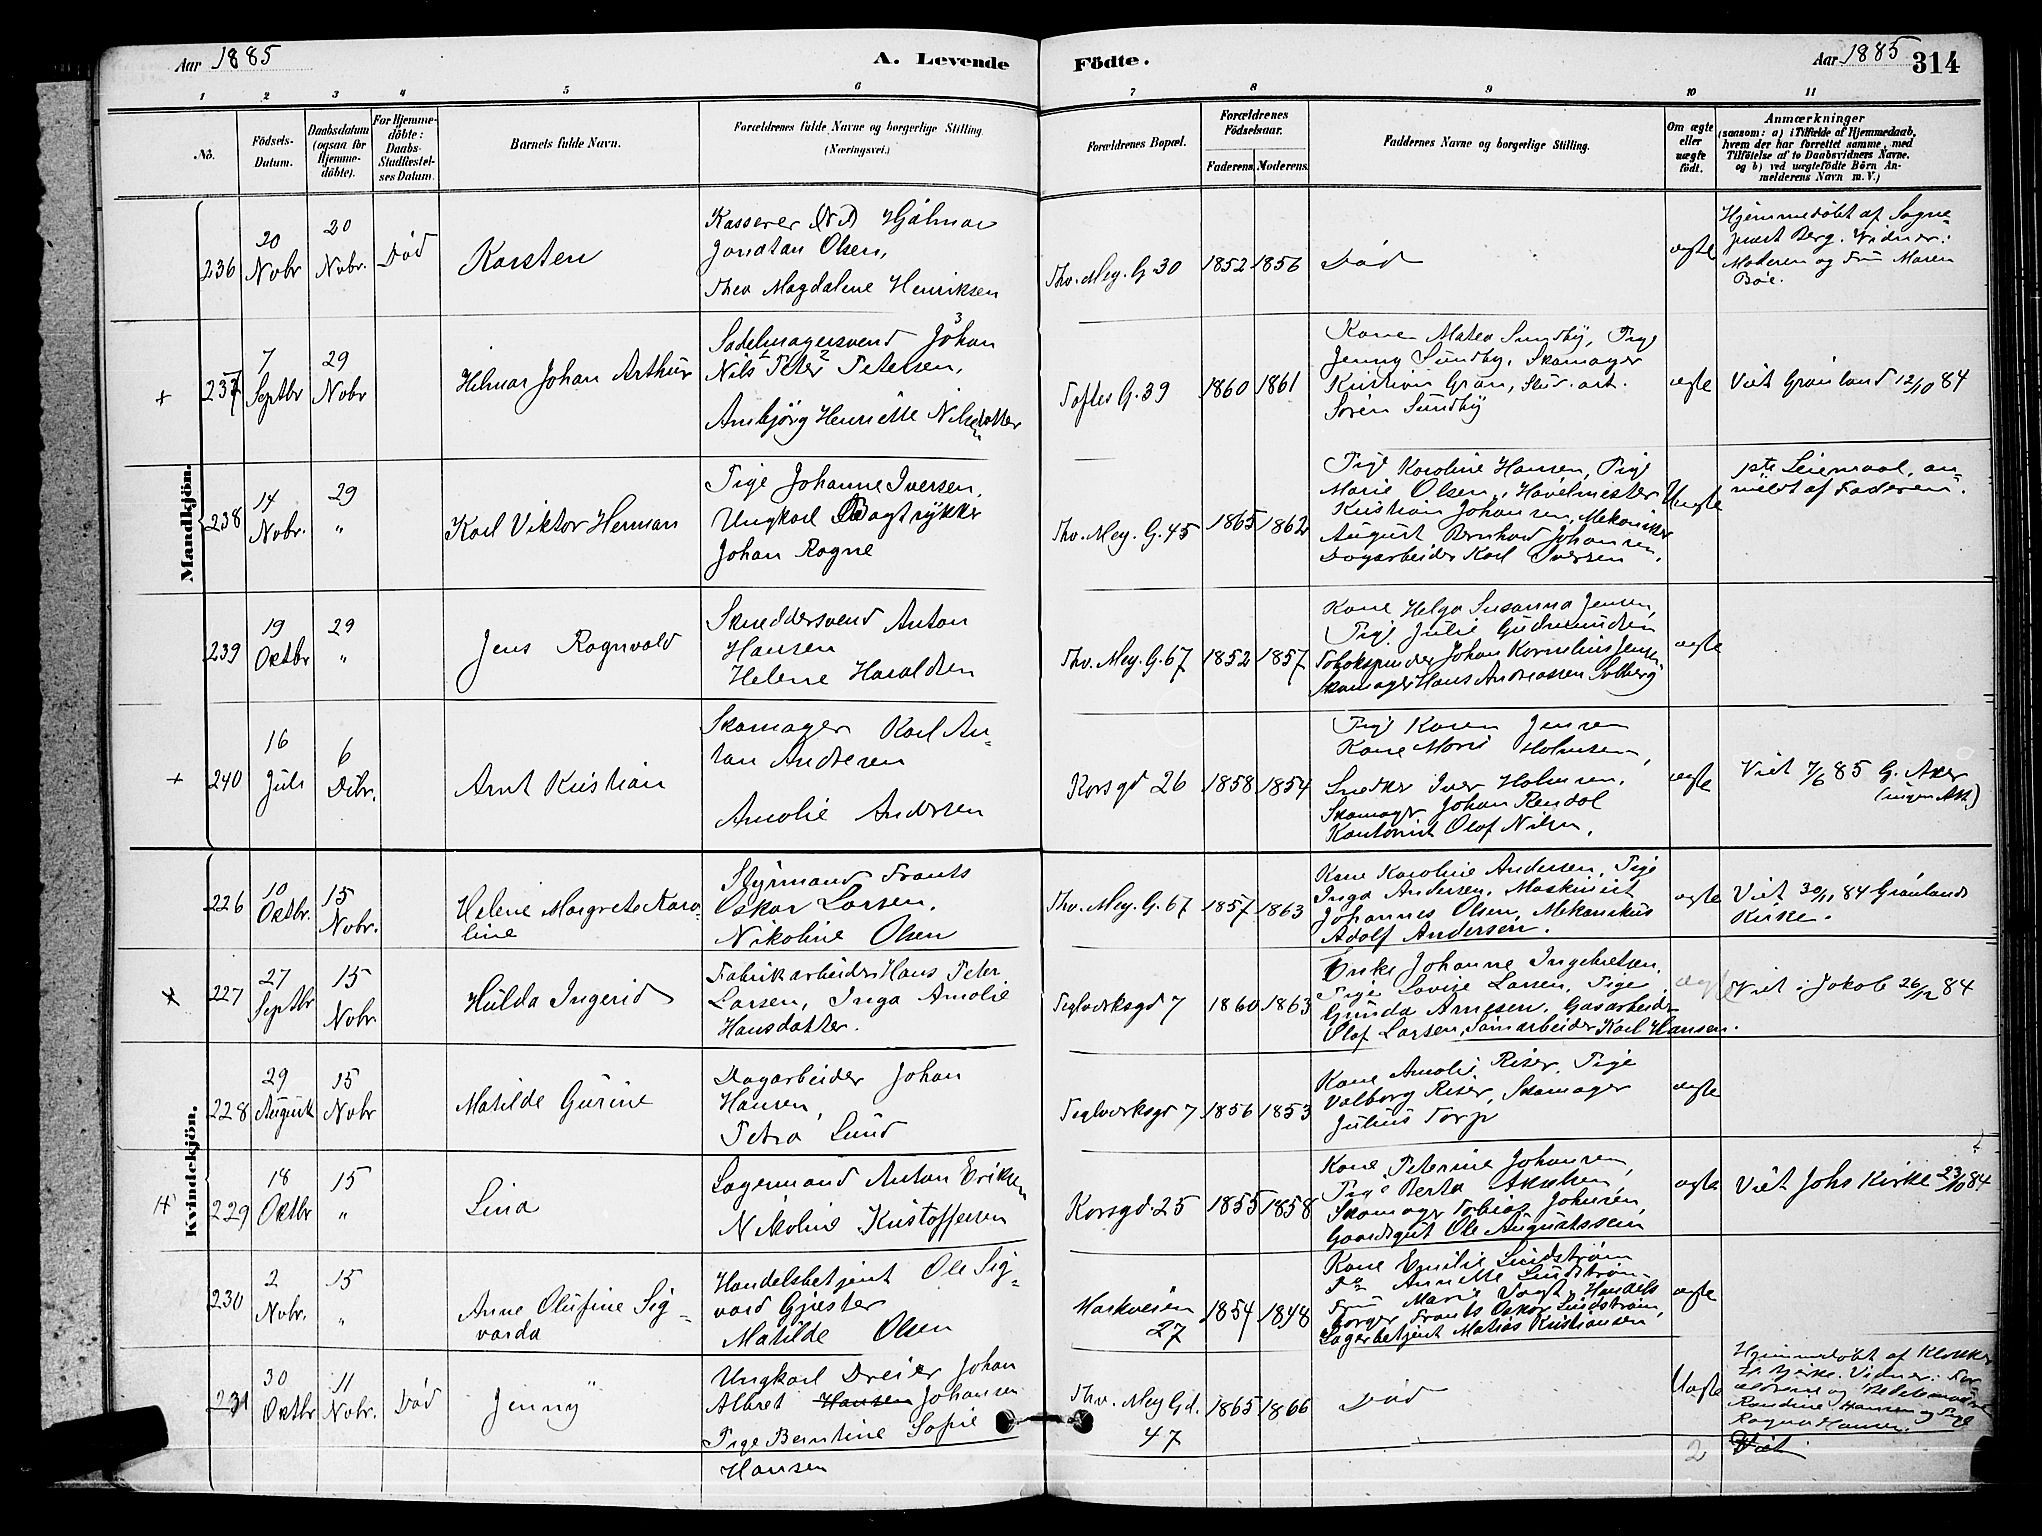 Aar 1885
A. Levende
Födte.
Aar 1885
314
1 2 3 4 5 6 7 8 9 10 11
No.
Födsels-Datum.
Daabsdatum (ogsaa for Hjemme-döbte).
For Hjemme-döbte: Daabs-Stadfæstel-ses Datum.
Barnets fulde Navn.
Forældrenes fulde Navne og borgerlige Stilling (Næringsvei.)
Forældrenes Bopæl.
Forældrenes Födselsaar.
Faderens. Moderens.
Faddernes Navne og borgerlige Stilling.
Om ægte eller uægte födt.
Anmærkninger
(saasom: a) i Tilfælde af Hjemmedaab,
hvem der har forrettet samme, med
Tilföielse af to Daabsvidners Navne.
og b) ved uægtefödte Börn An-
melderens Navn m. V.)
Mandkjön.
236
20 Nobr
20 Nobr.
Död
Karsten
Kasserer Hjalmar
Jonatan Olsen,
Thea Magdalene Henriksen
Thv. Mey. G. 30
1852 1856
Död
ægte
Hjemmedöbt af Sogne-
præst Berg. Vidner:
Moderen og Fru Maren
Böe.
+
237
7 Septbr
29 Nobr
Helmar Johan Arthur
Sadelmagersvend Johan
Nils Peter Petersen,
Anbjörg Henriette Nilsdatter
Toftes G. 39
1860 1861
Kone Matea Sundby, Pige
Jenny Sundby, Skomager
Kristian Gran,
Sören Sundby
ægte
Viet Grönland 12/10 84
238
14 Nobr.
29 "
Karl Viktor Herman
Pige Johanne Iversen,
Ungkarl Bogtrykker
Johan Rogne
Thv. Mey. G. 45
1865 1862
Pige Karoline Hansen, Pige
Marie Olsen, Hövelmester
Kristian Johansen, Mekaniker
August Bernhard Johansen,
Dagarbeider Karl Iversen.
Uægte
1ste Leiermaal, an-
meldt af Faderen.
239
19 Oktbr
29 "
Jens Ragnvald
Skreddersvend Anton
Hansen
Helene Haraldsen
Thv. Mey. G. 67
1852 1857
Kone Helga Susanna Jensen,
Pige Julie Gudmundsen
Tobakspinder Johan Kornelius Jensen
Skomager Hans Andreassen Solberg
ægte
+
240
16 Juli
6 Debr.
Arnt Kristian
Skomager Karl An-
ton Andersen
Amalie Andersen
Korsgd 26
1858 1854
Pige Karen Jensen
Kone Marie Holmsen,
Snedker Iver Holmsen,
Skomager Johan Rendal
Kontorist Olaf Nilsen.
ægte
Viet 7/6 85 G. Aker
(ingen Att)
Kvindekjön.
226
10 Oktbr.
15 Nobr.
Helene Margrete Karo-
line
Styrmand Frants
Oskar Larsen,
Nikoline Olsen
Thv. Mey. G. 67
1857 1863
Kone Karoline Andersen, Pige
Inga Andersen, Maskinist
Johannes Olsen, Mekanikus
Adolf Andersen.
ægte
Viet 30/11 84 Grönlands
Kirke.
+
227
27 Septbr
15 Nobr
Hulda Ingerid
Fabrikarbeider Hans Peter
Larsen, Inga Amalie
Hansdatter.
Teglverksgd 7
1860 1863
Enke Johanne Ingebretsen.
Pige Lovise Larsen, Pige
Gunda Arnesen, Gasarbeider
Olaf Larsen, Karl Hansen.
ægte
Viet i Jakob 26/12 84
228
29 August
15 Nobr
Matilde Gurine
Dagarbeider Johan
Hansen,
Petra Lund
Teglverksgd 7
1856 1853
Kone Amalie Riser, Pige
Valborg Riser, Skomager
Julius Torp
ægte
229
18 Oktbr
15 "
Lina
Lagermand Anton Eriksen
Nikoline Kristoffersen
Korsgd. 25
1855 1858
Kone Peterine Johansen,
Pige Berta Akselsen,
Skomager Tobias Johnsen,
Gaardsgut Ole Augustssen
ægte
Viet Johs Kirke 23/10 84
230
2 Nobr.
15 "
Anne Olufine Sig-
varda
Handelsbetjent Ole Sig-
vard Gjester
Matilde Olsen
Markveien
27
1854 1848
Kone Emilie Lindström
Do Annette Lindström
Fru Marie Vogt, Handels
borger Frants Oskar Lindström,
Lagerbetjent Matias Kristiansen
ægte
231
30 Oktbr
11 Nobr.
Död
Jenny
Ungkarl Dreier Johan
Albret Hansen Johansen
Pige Berntine Sofie
Hansen
Thv. Mey Gd.
47
1865 1866
Död
Uægte
Hjemmedöbt af Klokker
Bjerke. Vidner: For-
ældrene og
Randine Hansen og Pige
Ragna Hansen.
Viet
2